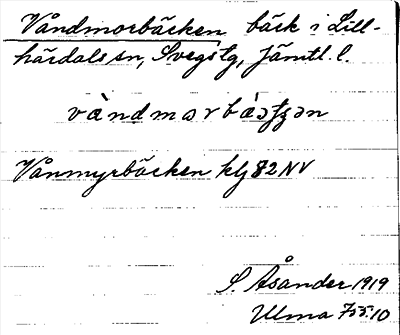 Våndmorbäcken bäck i Lill-
härdals sn, Svegs tg, Jämtl. l.
Vånmyrbäcken klj 82 NV
S. Åsander 1919
Ulma 755:10